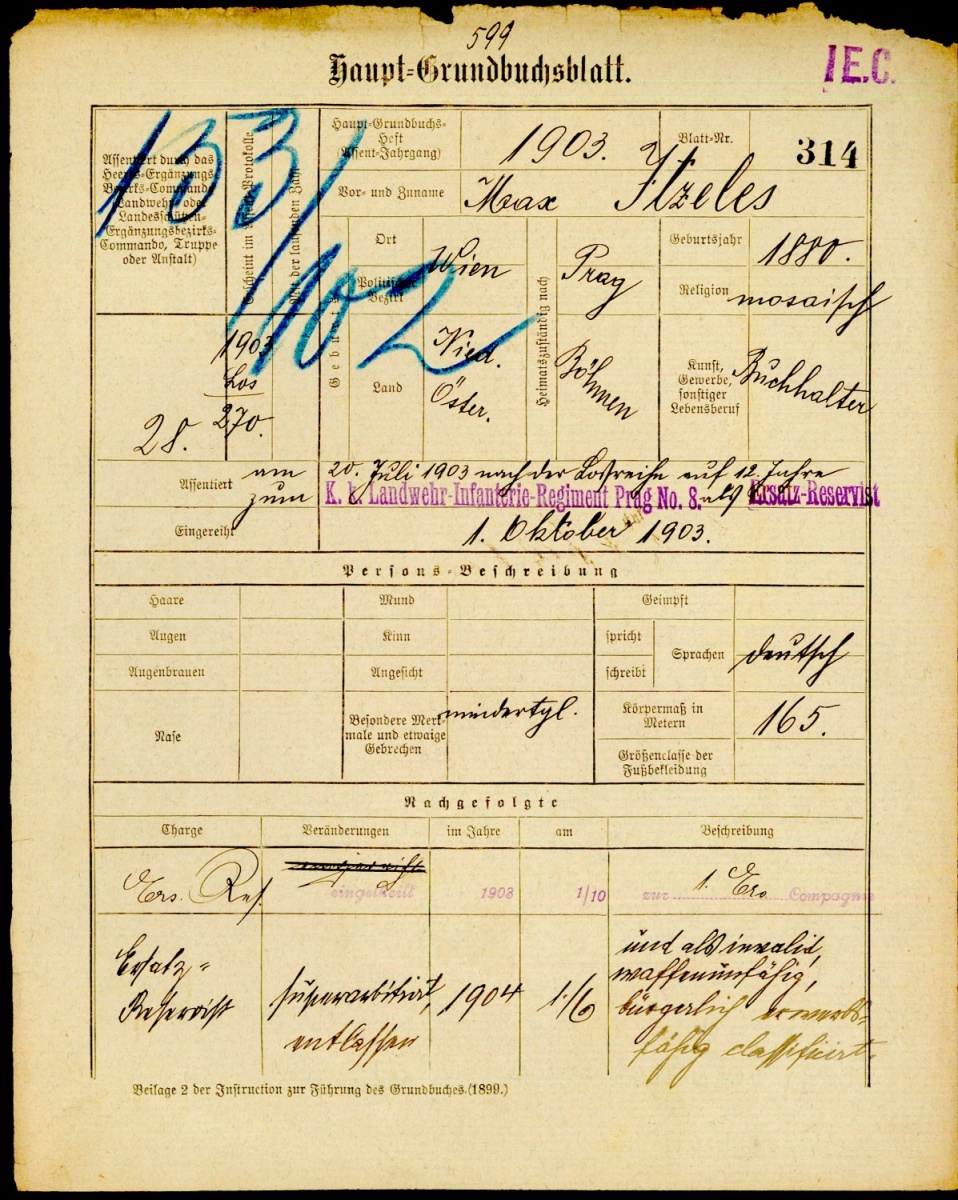 599
Haupt-Grundbuchsblatt.
1 E.C.
133/102
Assentiert durch das
Heeres-Ergänzungs-
Bezirks-Commando
Landwehr- oder
Landesschützen-
Ergänzungsbezirks-
Commando, Truppe
oder Anstalt)
Erscheint im Assent-Protokolle
Mit der laufenden Zahl
1903
Los
28. 270.
Haupt-Grundbuchs-
Heft
(Assent-Jahrgang)
1903.
Blatt-Nr.
314
Vor- und Zuname
Max Itzeles
Geburts
Ort
Politischer
Bezirk
Wien
Land
Nied.
Öster.
Heimatszuständig nach
Prag
Böhmen
Geburtsjahr
1880.
Religion
mosaisch
Kunst,
Gewerbe,
sonstiger
Lebensberuf
Buchhalter
Assentiert
am 20. Juli 1903 nach der Losreihe auf 12 Jahre
zum K. k. Landwehr-Infanterie-Regiment Prag No. 8. als Ersatz-Reservist
Eingereiht
1. Oktober 1903.
Persons-Beschreibung
Haare
Mund
Geimpft
Augen
Kinn
spricht
Sprachen
deutsch
Augenbrauen
Angesicht
schreibt
Nase
Besondere Merk-
male und etwaige
Gebrechen
mindertgl.
Körpermaß in
Metern
165.
Größenclasse der
Fußbekleidung
Nachgefolgte
Charge Veränderungen im Jahre am Beschreibung
Ers. Res. eingetheilt 1903 1/10 zur 1. Ers. Compagnie
Ersatz-
Reservist
superarbitriert,
entlassen
1904 1./6
und als invalid,
waffenunfähig,
bürgerlich erwerbs-
fähig classificiert.
Beilage 2 der Instruction zur Führung des Grundbuches. (1899.)